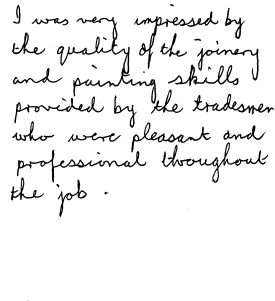 I was very impressed by
the quality of the joinery
and painting skills
provided by the tradesmen
who were pleasant and
professional throughout
the job .